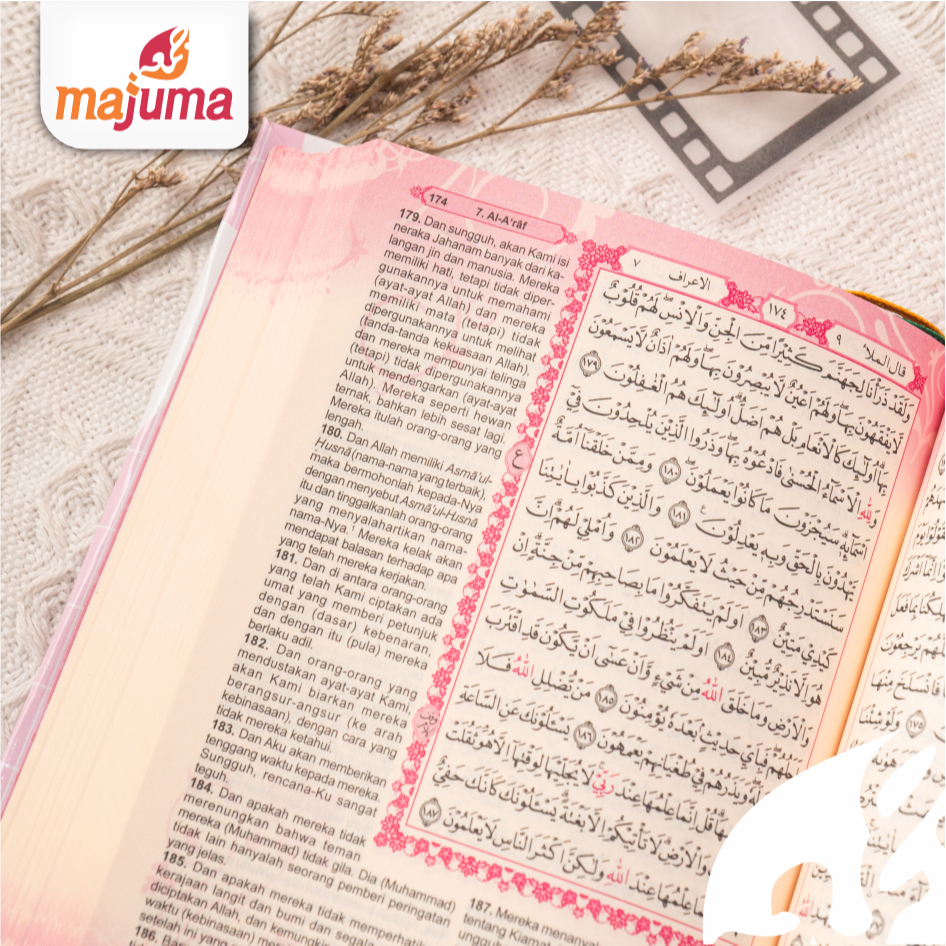 majuma
174
7. Al-A'rāf
179. Dan sungguh, akan Kami isi
neraka Jahanam banyak dari ka-
langan jin dan manusia. Mereka
memiliki hati, tetapi tidak diper-
gunakannya untuk memahami
(ayat-ayat Allah) dan mereka
memiliki mata (tetapi) tidak
dipergunakannya untuk melihat
(tanda-tanda kekuasaan Allah),
dan mereka mempunyai telinga
(tetapi) tidak dipergunakannya
untuk mendengarkan (ayat-ayat
Allah). Mereka seperti hewan
ternak, bahkan lebih sesat lagi.
Mereka itulah orang-orang yang
lengah.
180. Dan Allah memiliki Asmā'ul-
Husnā (nama-nama yang terbaik),
maka bermohonlah kepada-Nya
dengan menyebut Asmā'ul-Husnā
itu dan tinggalkanlah orang-orang
yang menyalahartikan nama-
nama-Nya.¹ Mereka kelak akan
mendapat balasan terhadap apa
yang telah mereka kerjakan.
181. Dan di antara orang-orang
yang telah Kami ciptakan ada
umat yang memberi petunjuk
dengan (dasar) kebenaran,
dan dengan itu (pula) mereka
berlaku adil.
182. Dan orang-orang yang
mendustakan ayat-ayat Kami,
akan Kami biarkan mereka
berangsur-angsur (ke arah
kebinasaan), dengan cara yang
tidak mereka ketahui.
183. Dan Aku akan memberikan
tenggang waktu kepada mereka.
Sungguh, rencana-Ku sangat
teguh.
184. Dan apakah mereka tidak
merenungkan bahwa teman
mereka (Muhammad) tidak gila. Dia (Muhammad)
tidak lain hanyalah seorang pemberi peringatan
yang jelas.
185. Dan apakah mereka tidak memperhatik
kerajaan langit dan bumi dan segala
diciptakan Allah, dan kemungkin
waktu (kebinasaan) mere
setelah ini yang
186. Bar
187. Mereka menanya
tentang Kiamat
قال الملأ ٩
١٧٤
الاعراف ٧
وَلَقَدْ ذَرَأْنَا لِجَهَنَّمَ كَثِيْرًا مِّنَ الْجِنِّ وَالْاِنْسِۖ لَهُمْ قُلُوْبٌ
لَّا يَفْقَهُوْنَ بِهَاۖ وَلَهُمْ اَعْيُنٌ لَّا يُبْصِرُوْنَ بِهَاۖ وَلَهُمْ اٰذَانٌ لَّا يَسْمَعُوْنَ
بِهَاۗ اُولٰۤىِٕكَ كَالْاَنْعَامِ بَلْ هُمْ اَضَلُّۗ اُولٰۤىِٕكَ هُمُ الْغٰفِلُوْنَ ١٧٩
وَلِلّٰهِ الْاَسْمَاۤءُ الْحُسْنٰى فَادْعُوْهُ بِهَاۖ وَذَرُوا الَّذِيْنَ يُلْحِدُوْنَ فِيْٓ
اَسْمَاۤىِٕهٖۗ سَيُجْزَوْنَ مَا كَانُوْا يَعْمَلُوْنَ ١٨٠ وَمِمَّنْ خَلَقْنَآ اُمَّةٌ
يَّهْدُوْنَ بِالْحَقِّ وَبِهٖ يَعْدِلُوْنَ ١٨١ وَالَّذِيْنَ كَذَّبُوْا بِاٰيٰتِنَا
سَنَسْتَدْرِجُهُمْ مِّنْ حَيْثُ لَا يَعْلَمُوْنَ ١٨٢ وَاُمْلِيْ لَهُمْ اِنَّ
كَيْدِيْ مَتِيْنٌ ١٨٣ اَوَلَمْ يَتَفَكَّرُوْا مَا بِصَاحِبِهِمْ مِّنْ جِنَّةٍۗ اِنْ
هُوَ اِلَّا نَذِيْرٌ مُّبِيْنٌ ١٨٤ اَوَلَمْ يَنْظُرُوْا فِيْ مَلَكُوْتِ السَّمٰوٰتِ
وَالْاَرْضِ وَمَا خَلَقَ اللّٰهُ مِنْ شَيْءٍ وَّاَنْ عَسٰٓى اَنْ يَّكُوْنَ قَدِ اقْتَرَبَ
لُهُمْۖ فَبِاَيِّ حَدِيْثٍۢ بَعْدَهٗ يُؤْمِنُوْنَ ١٨٥ مَنْ يُّضْلِلِ اللّٰهُ فَلَا
لَهٗ وَيَذَرُهُمْ فِيْ طُغْيَانِهِمْ يَعْمَهُوْنَ ١٨٦ يَسْـَٔلُوْنَكَ عَنِ السَّاعَةِ
قُلْ اِنَّمَا عِلْمُهَا عِنْدَ رَبِّيْ لَا يُجَلِّيْهَا لِوَقْتِهَآ اِلَّا هُوَۘ ثَقُلَتْ
وَالْاَرْضِۗ لَا تَأْتِيْكُمْ اِلَّا بَغْتَةًۗ يَسْـَٔلُوْنَكَ كَاَنَّكَ حَفِيٌّ
عِلْمُهَا عِنْدَ اللّٰهِ وَلٰكِنَّ اَكْثَرَ النَّاسِ لَا يَعْلَمُوْنَ ١٨٧